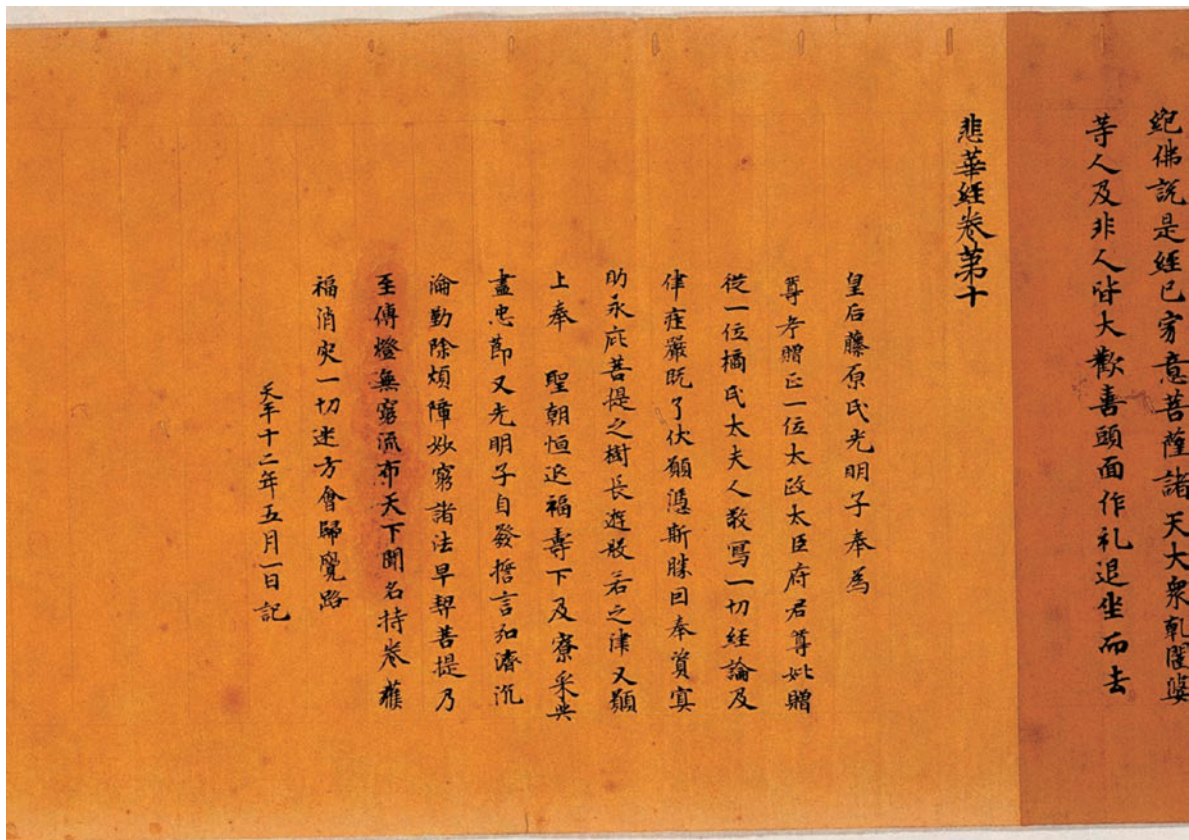 説佛説是經已寂意菩薩諸天大衆乹闥婆
等人及非人皆大歡喜頭面作礼退坐而去
悲華經卷第十
皇后藤原氏光明子奉爲
尊考贈正一位太政太臣府君尊妣贈
從一位橘氏太夫人敬寫一切經論及
律莊嚴既了伏願憑斯勝因奉資冥
助永庇菩提之樹長遊般若之津又願
上奉 聖朝恒延福壽下及寮采共
盡忠節又光明子自發擔言弘濟沉
淪勤除煩障妙窮諸法早契菩提乃
至傳燈無窮流布天下聞名持卷獲
福消灾一切迷方會歸覺路
天平十二年五月一日記